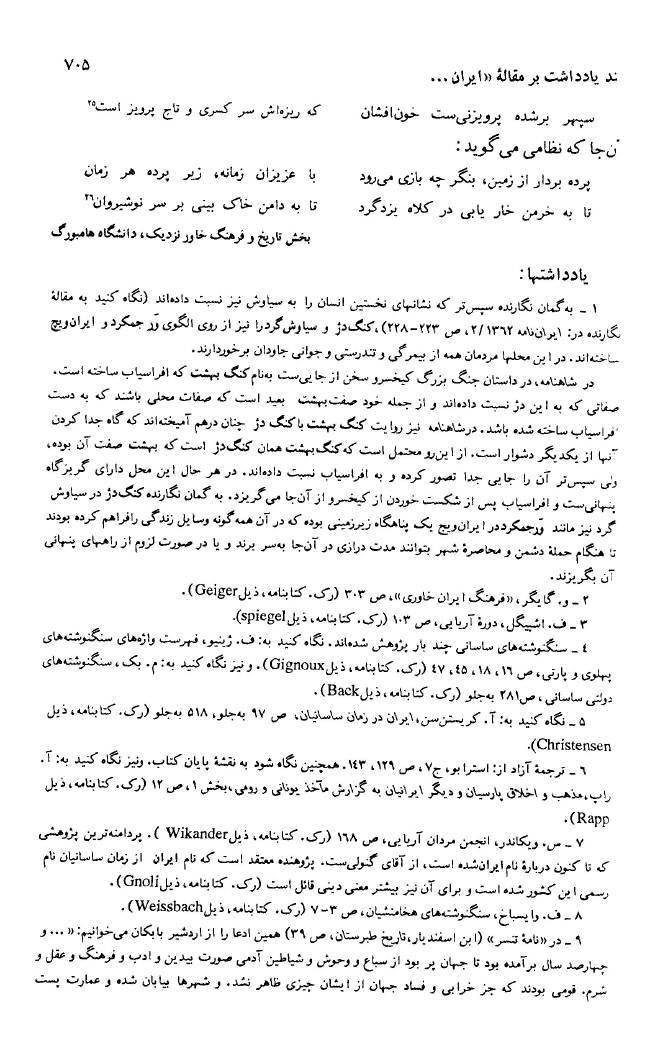 ند یادداشت بر مقالهٔ «ایران ...
۷۰۵
سپهر برشده پرویزنی‌ست خون‌افشان که ریزه‌اش سر کسری و تاج پرویز است۲۵
ن‌جا که نظامی می‌گوید:
پرده بردار از زمین، بنگر چه بازی می‌رود با عزیزان زمانه، زیر پرده هر زمان
تا به خرمن خار یابی در کلاه یزدگرد تا به دامن خاک بینی بر سر نوشیروان۲۶
بخش تاریخ و فرهنگ خاور نزدیک، دانشگاه هامبورگ
یادداشتها:
۱ ـ به‌گمان نگارنده سپس‌تر که نشانهای نخستین انسان را به سیاوش نیز نسبت داده‌اند (نگاه کنید به مقالهٔ
نگارنده در: ایران‌نامه ۲/۱۳۶۲، ص ۲۲۳-۲۲۸)، کنگ‌دژ و سیاوش‌گرد را نیز از روی الگوی وَرِ جمکرد و ایران‌ویج
ساخته‌اند. در این محلها مردمان همه از بیمرگی و تندرستی و جوانی جاودان برخوردارند.
در شاهنامه، در داستان جنگ بزرگ کیخسرو سخن از جایی‌ست به‌نام کنگ بهشت که افراسیاب ساخته است.
صفاتی که به این دژ نسبت داده‌اند و از جمله خود صفت بهشت بعید است که صفات محلی باشند که به دست
فراسیاب ساخته شده باشد. در شاهنامه نیز روایت کنگ بهشت با کنگ دژ چنان درهم آمیخته‌اند که گاه جدا کردن
آنها از یکدیگر دشوار است. از این‌رو محتمل است که کنگ بهشت همان کنگ‌دژ است که بهشت صفت آن بوده،
ولی سپس‌تر آن را جایی جدا تصور کرده و به افراسیاب نسبت داده‌اند. در هر حال این محل دارای گریزگاه
پنهانی‌ست و افراسیاب پس از شکست خوردن از کیخسرو از آن‌جا می‌گریزد. به گمان نگارنده کنگ‌دژ در سیاوش
گرد نیز مانند وَرِجمکرد در ایران‌ویج یک پناهگاه زیرزمینی بوده که در آن همه‌گونه وسایل زندگی را فراهم کرده بودند
تا هنگام حملهٔ دشمن و محاصرهٔ شهر بتوانند مدت درازی در آن‌جا به‌سر برند و یا در صورت لزوم از راههای پنهانی
آن بگریزند.
۲ ـ و. گایگر، «فرهنگ ایران خاوری»، ص ۳۰۳ (رک. کتابنامه، ذیل Geiger).
۳ ـ ف. اشپیگل، دورهٔ آریایی، ص ۱۰۳ (رک. کتابنامه، ذیل spiegel).
۴ ـ سنگنوشته‌های ساسانی چند بار پژوهش شده‌اند. نگاه کنید به: ف. ژینیو، فهرست واژه‌های سنگنوشته‌های
پهلوی و پارتی، ص ۱۶، ۱۸، ۴۵، ۴۷ (رک. کتابنامه، ذیل Gignoux). و نیز نگاه کنید به: م. بک، سنگنوشته‌های
دولتی ساسانی، ص ۲۸۱ به‌جلو (رک. کتابنامه، ذیل Back).
۵ ـ نگاه کنید به: آ. کریستن‌سن، ایران در زمان ساسانیان، ص ۹۷ به‌جلو، ۵۱۸ به‌جلو (رک. کتابنامه، ذیل
Christensen).
۶ ـ ترجمهٔ آزاد از: استرابو، ج۷، ص ۱۲۹، ۱۴۳. همچنین نگاه شود به نقشهٔ پایان کتاب. ونیز نگاه کنید به: آ.
راپ، مذهب و اخلاق پارسیان و دیگر ایرانیان به گزارش مآخذ یونانی و رومی، بخش ۱، ص ۱۲ (رک. کتابنامه، ذیل
Rapp).
۷ ـ س. ویکاندر، انجمن مردان آریایی، ص ۱۶۸ (رک. کتابنامه، ذیل Wikander). پردامنه‌ترین پژوهشی
که تا کنون دربارهٔ نام ایران شده است، از آقای گنولی‌ست. پژوهنده معتقد است که نام ایران از زمان ساسانیان نام
رسمی این کشور شده است و برای آن نیز بیشتر معنی دینی قائل است (رک. کتابنامه، ذیل Gnoli).
۸ ـ ف. وایسباخ، سنگنوشته‌های هخامنشیان، ص ۳-۷ (رک. کتابنامه، ذیل Weissbach).
۹ ـ در «نامهٔ تنسر» (ابن اسفندیار، تاریخ طبرستان، ص ۳۹) همین ادعا را از اردشیر بابکان می‌خوانیم: «... و
چهارصد سال برآمده بود تا جهان پر بود از سباع و وحوش و شیاطین آدمی صورت بیدین و ادب و فرهنگ و عقل و
شرم. قومی بودند که جز خرابی و فساد جهان از ایشان چیزی ظاهر نشد. و شهرها بیابان شده و عمارت پست